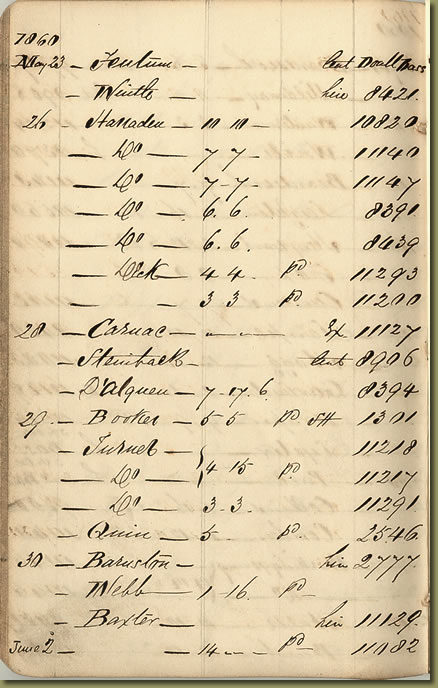 1860
May 23 — Fentum — Cent Doall Bass
— Wintle — hire 8421.
26 — Hanaden — 10 10 — 10820
— Do — 7 7 — 11140
— Do — 7 — 7 — 11147
— Do — 6. 6. 8390
— Do — 6. 6. 8639
— Dick — 4 4. pd 11293
— — 3 3 pd. 11200
28 — Carnac — Ex 11127
— Steinback — Cent 8906
— D'Alquen — 7. 17. 6. 8394
29. — Booker — 5 5 pd SH 1301
— Turner — 11218
— Do — } 4 15 pd. 11217
— Do — 3 — 3. 11291
— Quin — 5 pd. 2546.
30 — Barnston — hire 2777.
— Webb — 1 — 16. pd
— Baxter — hire 11129.
June 2 — — 14 — — pd 11082